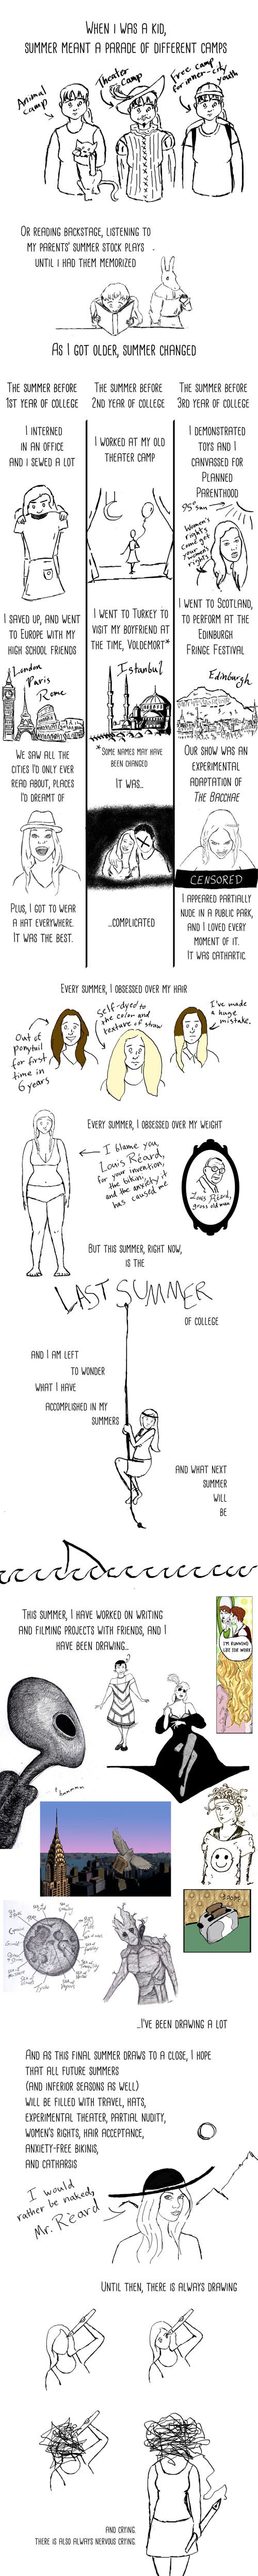 When I was a kid,
summer meant a parade of different camps
Animal
camp
Theater
camp
Free camp
for inner-city
youth
Or reading backstage, listening to
my parents' summer stock plays
until I had them memorized
As I got older, summer changed
The summer before
1st year of college
I interned
in an office
and I sewed a lot
I saved up, and went
to Europe with my
high school friends
London
Paris
Rome
We saw all the
cities I'd only ever
read about, places
I'd dreamt of
Plus, I got to wear
a hat everywhere.
It was the best.
The summer before
2nd year of college
I worked at my old
theater camp
I went to Turkey to
visit my boyfriend at
the time, Voldemort*
Istanbul
*Some names may have
been changed
It was..
...complicated
The summer before
3rd year of college
I demonstrated
toys and I
canvassed for
Planned
Parenthood
95° sun
Women's
rights
come get
your women's
rights
I went to Scotland,
to perform at the
Edinburgh
Fringe Festival
Edinburgh
Our show was an
experimental
adaptation of
The Bacchae
CENSORED
I appeared partially
nude in a public park,
and I loved every
moment of it.
It was cathartic.
Every summer, I obsessed over my hair
Out of
ponytail
for first
time in
6 years
Self-dyed to
the color and
texture of straw
I've made
a huge
mistake.
Every summer, I obsessed over my weight
I blame you,
Louis Réard,
for your invention,
the bikini,
and the anxiety it
has caused me
Louis Réard,
gross old man
But this summer, right now,
is the
LAST SUMMER
of college
and I am left
to wonder
what I have
accomplished in my
summers
and what next
summer
will
be
This summer, I have worked on writing
and filming projects with friends, and I
have been drawing...
I'm running
late for work
hmmmmm
...I've been drawing a lot
And as this final summer draws to a close, I hope
that all future summers
(and inferior seasons as well)
will be filled with travel, hats,
experimental theater, partial nudity,
women's rights, hair acceptance,
anxiety-free bikinis,
and catharsis
I would
rather be naked,
Mr. Réard
Until then, there is always drawing
and crying.
there is also always nervous crying.